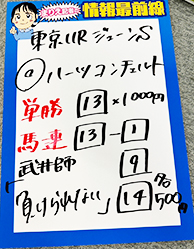 情報最前線
東京11R ジューンS
◎ハーツコンチェルト
単勝 13 ×1000円
馬連 13-1
武井師 9
「負けられない」 14 各500円